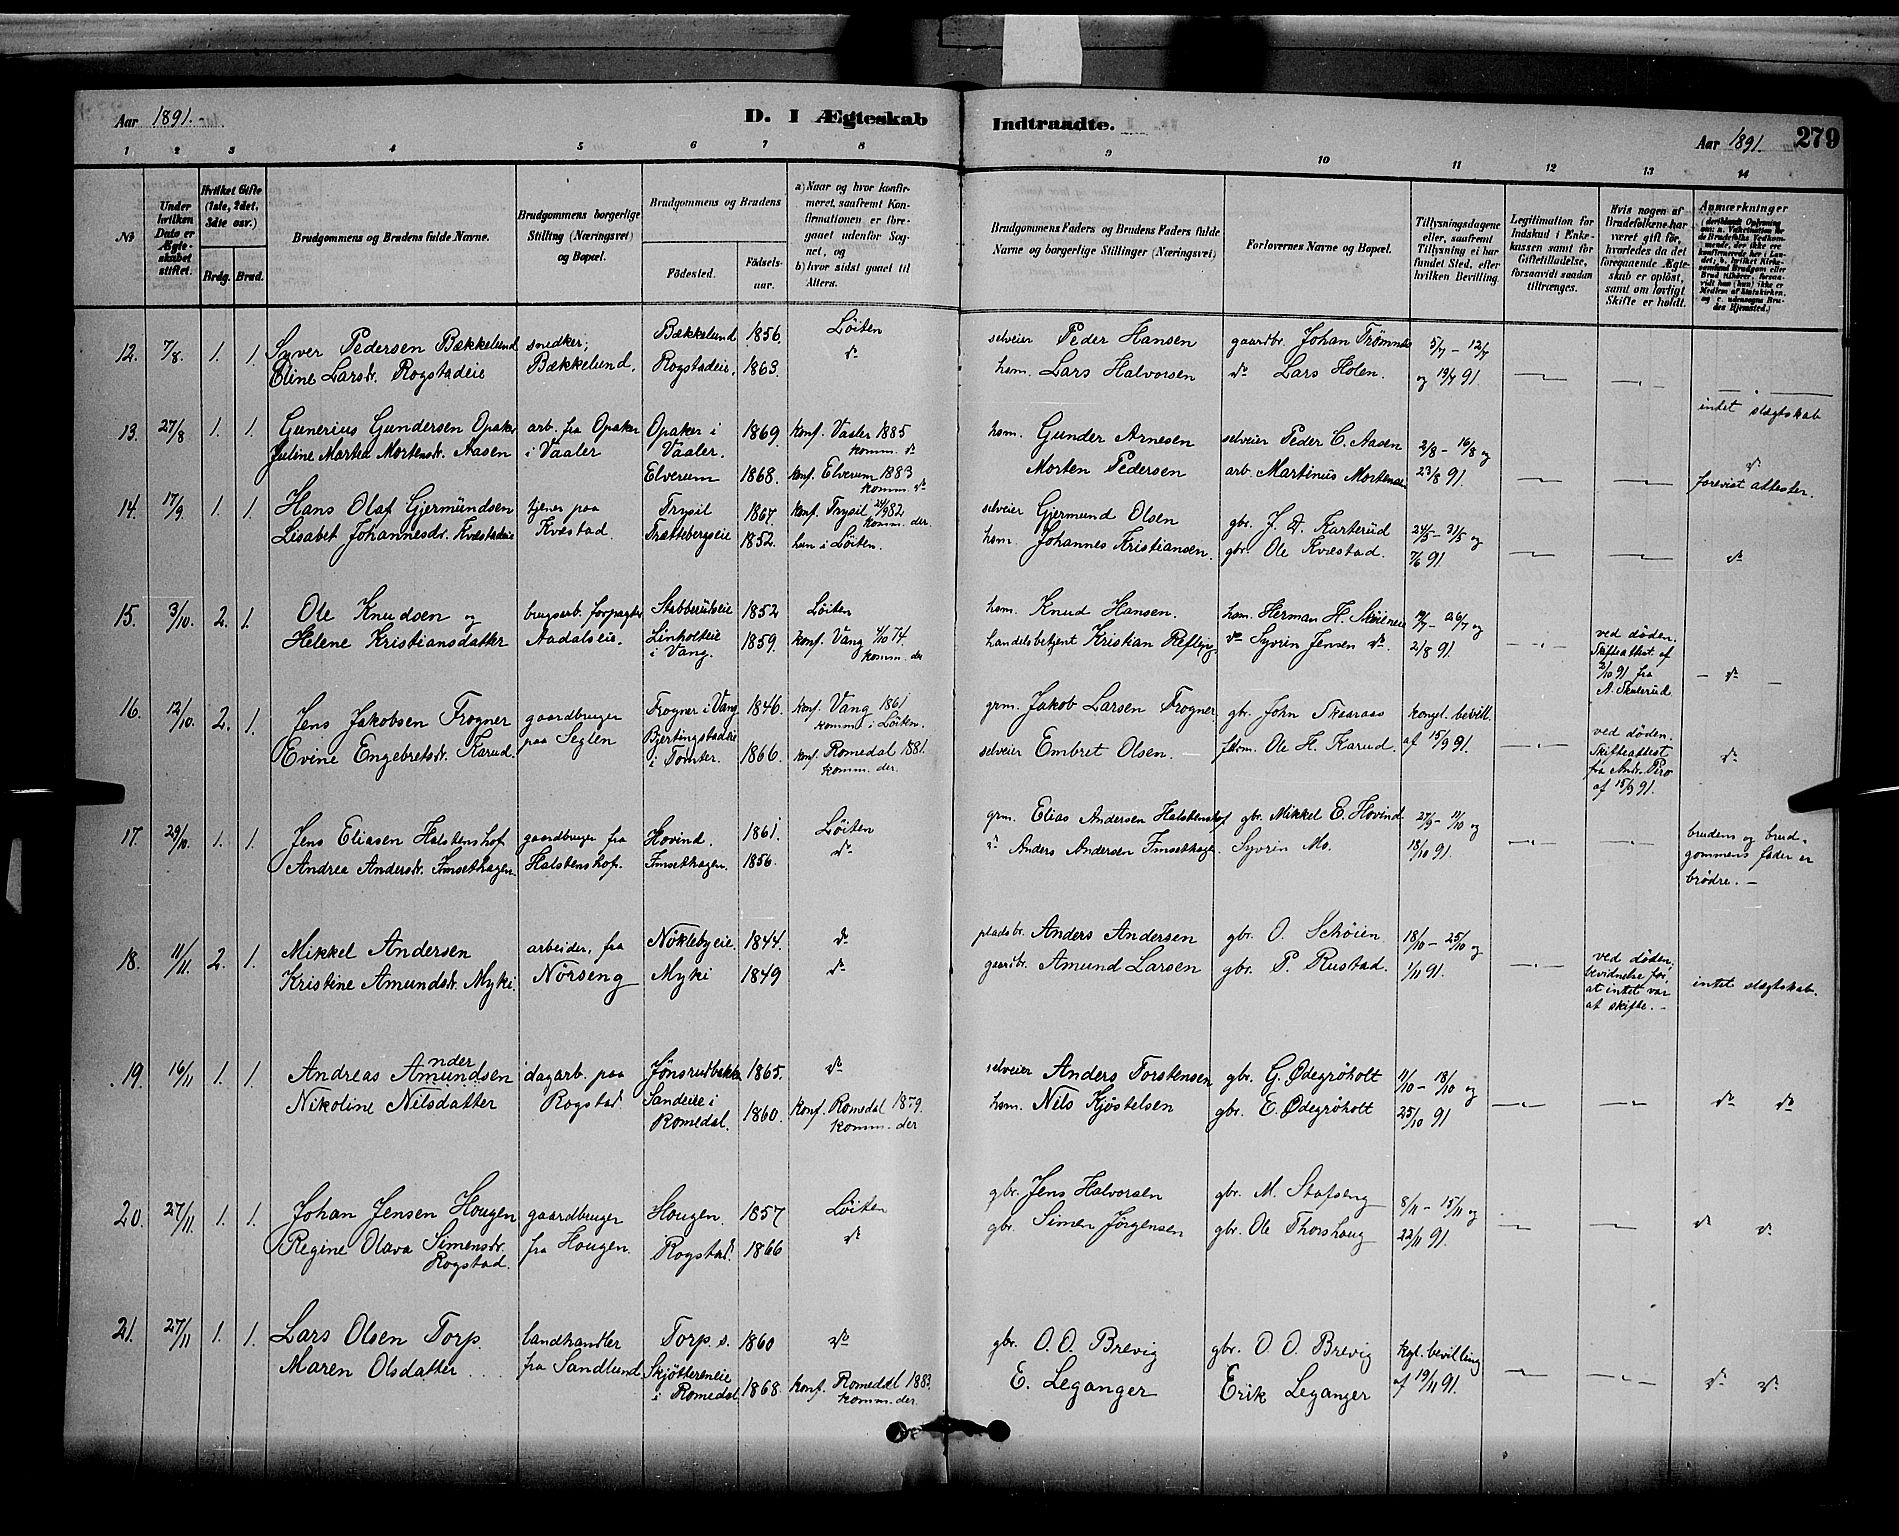 Aar 1891.
D. I Ægteskab
Indtraadte.
Aar 1891.
279
1 2 3 4 5 6 7 8 9 10 11 12 13 14
No
Under hvilken Dato er Ægteskabet stiftet.
Hvilket Gifte (1ste, 2det, 3dte osv.)
Brdg. Brud.
Brudgommens og Brudens fulde Navne.
Brudgommens borgerlige Stilling (Næringsvei) og Bopæl.
Brudgommens og Brudens
Fødested.
Fødselsaar.
a) Naar og hvor konfirmeret, saafremt Konfirmationen er foregaaet udenfor Sognet, og
b) hvor sidst gaaet til Alters.
Brudgommens Faders og Brudens Faders fulde Navne og borgerlige Stillinger (Næringsvei)
Forlovernes Navne og Bopæl.
Tillysningsdagene eller, saafremt Tillysning ei har fundet Sted, efter hvilken Bevilling.
Legitimation for Indskud i Enkekassen samt for Giftetilladelse, forsaavidt saadan tiltrænges.
Hvis nogen af Brudefolkene har været gift før, hvorledes da det foregaaende Ægteskab er opløst, samt om lovligt Skifte er holdt.
Anmærkninger
12. 7/8. 1. 1. Syver Pedersen Bækkelund snedker, Bækkelund 1856. Løiten selveier Peder Hansen gaardbr. Johan Trømnæs 5/7 - 12/7
Eline Larsdr. Rogstadeie Bækkelund. Rogstadeie. 1863. do hsm. Lars Halvorsen do Lars Holen. og 19/7 91.
intet slægtskab
13. 27/8 1. 1. Gunerius Gundersen Opaker arb. fra Opaker Opaker i 1869. konf. Vaaler 1885 hsm. Gunder Arnesen selveier Peder C. Aasen 2/8 - 16/8 og
Juline Martea Mortensdr. Aasen i Vaaler Vaaler. komm. do Morten Pedersen arb. Martinus Mortensen 23/8 91. do
Elverum 1868. konf. Elverum 1883 forevist attester.
komm. do
14. 17/9 1. 1. Hans Olaf Gjermundsen tjener paa Trysil 1867. konf. Trysil 24/9 82 selveier Gjermund Olsen gbr. J. D. Karterud 24/5 - 31/5 og
komm. der.
Lisabet Johannesdr. Kvæstadeie Kvæstad. Trættebergseie 1852. hun i Løiten. hsm. Johannes Kristiansen. gbr. Ole Kvæstad. 7/6 91. do
15. 3/10. 2. 1. Ole Knudsen og brugsarb. forpagter Stabberudseie 1852 Løiten hsm. Knud Hansen. hsm. Herman H. Skøieneie 19/7 - 26/7 og
Helene Kristiansdatter Aadalseie. Linholteie 1859. konf. Vang 4/10 74. handelsbetjent Kristian Refling do Syvrin Jensen do. 2/8 91. ved døden.
i Vang. komm. der Skifteattest af
2/10 91 fra do
A. Skulerud
16. 12/10. 2. 1. Jens Jakobsen Frogner gaardbruger Frogner i Vang 1846. konf. Vang 1861 grm. Jakob Larsen Frogner gb. John Skaaraas kongl. bevill.
paa Seglen Bjertingstadeie komm. i Løiten.
Evine Engebretsdr. Karud. i Tomter. 1866. konf. Romedal 1881. selveier Embret Olsen. fhsm. Ole H. Karud. af 15/9 91. ved døden.
komm. der. Skifteattest do
fra Andr. Piro
af 15/9 91.
17. 29/10. 1. 1. Jens Eliasen Halstenshof gaardbruger fra Hovind. 1861. Løiten grm. Elias Andersen Halstenshof gbr. Mikkel E. Hovind 27/9 - 11/10 og
Andrea Andersdr. Finsethagen Halstenshof. Finsethagen. 1856. do do Anders Andersen Finsethagen. Syvrin Mo. 18/10 91.
brudens og brudgommens fader er
brødre. -
18. 11/11. 2. 1. Mikkel Andersen arbeider, fra Nøklebyeie. 1844. do pladsbr. Anders Andersen gbr. O. Schøien 18/10 - 25/10 og
Kristine Amundsdr. Myki. Nørseng Myki 1849 do gaardbr. Amund Larsen gbr. P. Rustad. 1/11 91. ved døden,
bevidnelse for
at intet var
at skifte. -
intet slægtskab.
19. 16/11 1. 1. Andreas Amundsen dagarb. paa Jønsrudbakken 1865. do selveier Anders Torstensen gbr. G. Ødegrøholt 11/10 - 18/10 og
nder
Nikoline Nilsdatter Rogstad Sandeie i 1860. konf. Romedal 1879. hsm. Nils Kjøstelsen gbr. E. Ødegrøholt 25/10 91 do do
Romedal. komm. der
20. 27/11. 1. 1. Johan Jensen Hougen gaardbruger Hougen. 1857 Løiten gbr. Jens Halvorsen gbr. M. Stafseng 8/11 - 15/11 og
Regine Olava Simensdr. fra Hougen. Rogstad 1866 do gbr. Simen Jørgensen gbr. Ole Thorshaug 22/11 91. do do.
Rogstad.
21. 27/11 1. 1. Lars Olsen Torp. landhandler Torp s. 1860 do gbr. O. O. Brevig gbr. O. O. Brevig kgl. bevilling
Maren Olsdatter... fra Sandlund Skjøttereneie
i Romedal 1868. konf. Romedal 1883. E. Leganger Erik Leganger af 19/11 91. do do.
komm. der.